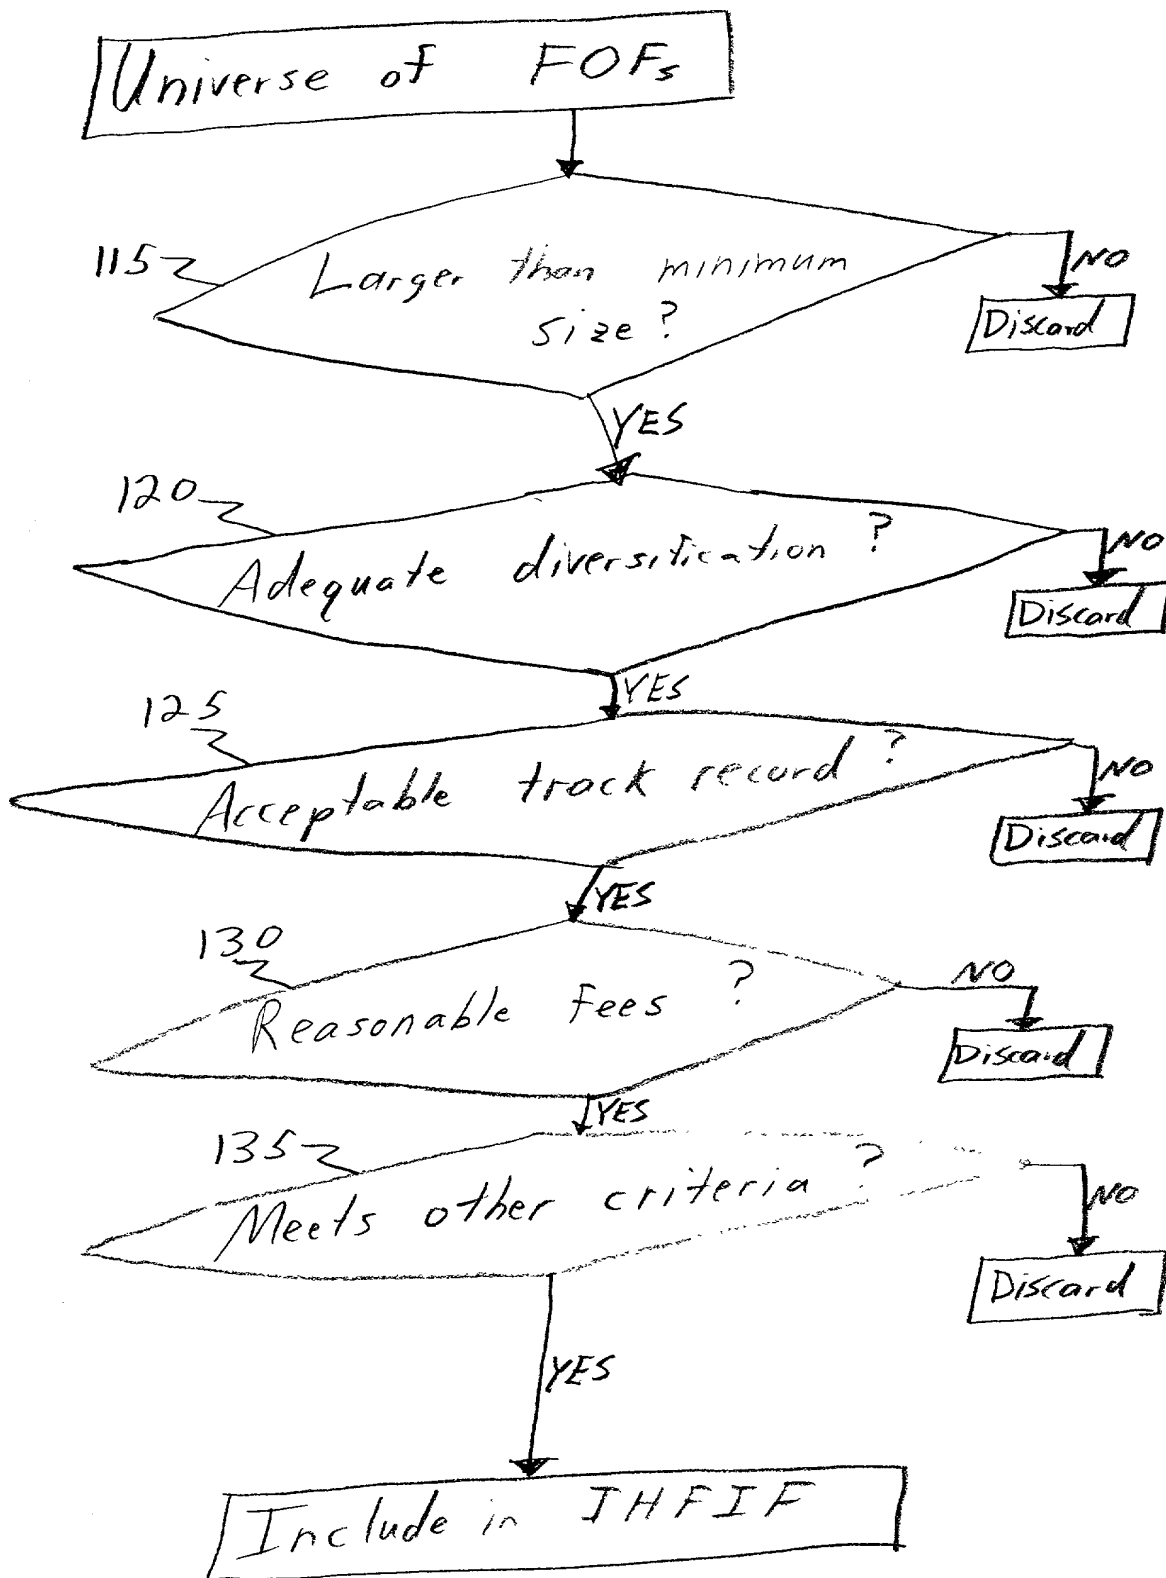 Universe of FOFs
115
Larger than minimum
size?
NO
Discard
YES
120
Adequate diversification?
NO
Discard
YES
125
Acceptable track record?
NO
Discard
YES
130
Reasonable Fees?
NO
Discard
YES
135
Meets other criteria?
NO
Discard
YES
Include in IHFIF